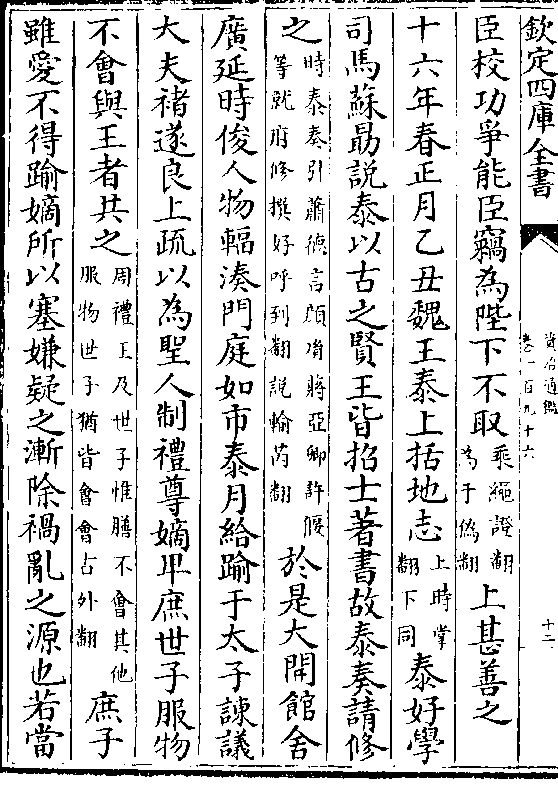 欽定四庫全書
資治通鑑
卷一百九十六
十二
臣校功爭能臣竊為陛下不取乘繩證翻為于偽翻上甚善之
十六年春正月乙丑魏王泰上括地志上時掌翻下同泰好學
司馬蘇勗説泰以古之賢王皆招士著書故泰奏請修
之時泰奏引蕭德言顧胤蔣亞卿許偃等就府修撰好呼到翻説輸芮翻於是大開館舍
廣延時俊人物輻湊門庭如市泰月給踰于太子諫議
大夫褚遂良上疏以為聖人制禮尊嫡卑庶世子服物
不會與王者共之周禮王及世子惟膳不會其他服物世子猶皆會會古外翻庶子
雖愛不得踰嫡所以塞嫌疑之漸除禍亂之源也若當